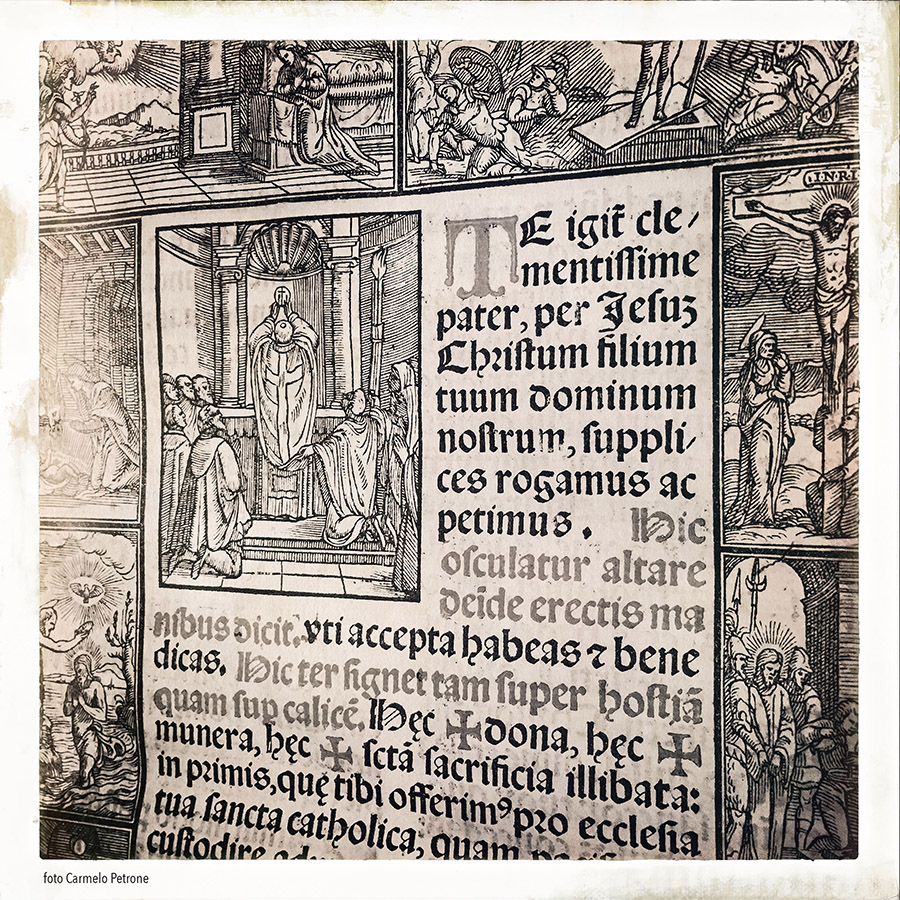 TE igit̃ cle/
mentiſſime
pater, per Jeſuʒ
Chꝛiſtum filium
tuum dominum
noſtrum, ſuppli/
ces rogamus ac
petimus. Hic
oſculatur altare
deīde erectis ma
nibus dicit. vti accepta habeas ⁊ bene
dicas. Hic ter ſignet tam ſuper hoſtiā
quam ſup calicē. Hęc ✠ dona, hęc ✠
munera, hęc ✠ ſctā ſacrificia illibata:
in pꝛimis, quę tibi offerimꝰ pꝛo eccleſia
tua ſancta catholica; quam
cuſtodire
INRI
foto Carmelo Petrone